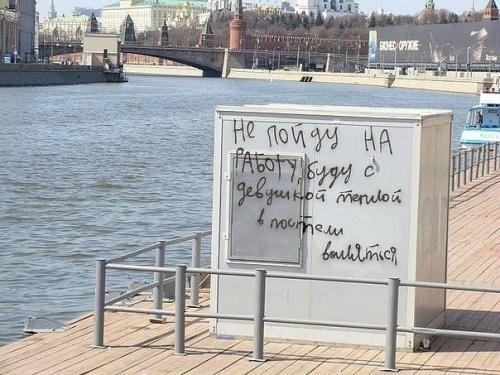 БИЗНЕС ОРУЖИЕ
НЕ ПОЙДУ НА
РАБОТУ, буду с
девушкой теплой
в постели
валяться